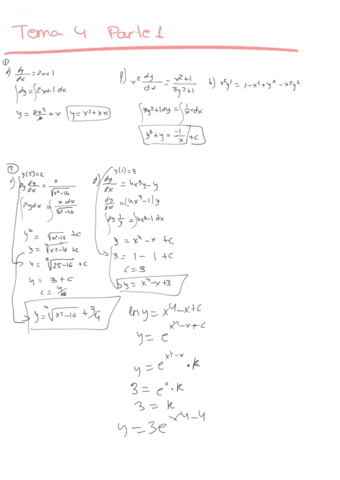 Tema 4 Parte 1
①
a) dy/dx = 2x+1
∫dy = ∫2x+1 dx
y = 2x²/2 + x  y = x²+x+c
f) x² dy/dx = x²+1/3y²+1
∫3y²+1 dy = ∫1/x² dx
y³+y = -1/x + c
h) x²y' = 1-x²+y²-x²y²
②
y(5)=2
dy/dx = x/√x²-16
x dx/√x²-16
y² = √x²-16 + c
y = √x²-16 + c
4 = √25-16 + c
4 = 3+c
y = ⁴√x²-16 + 3/4
d) y(1)=3
dy/dx = 4x³y-y
dy/dx = (4x³-1)y
∫dy 1/y = ∫4x³-1 dx
y = x⁴-x+c
3 = 1-1+c
c = 3
y = x⁴-x+3
ln y = x⁴-x+c
y = e^(x⁴-x+c)
y = e^(x⁴-x) · k
3 = e⁰ · k
3 = k
y = 3e^(x⁴-4)